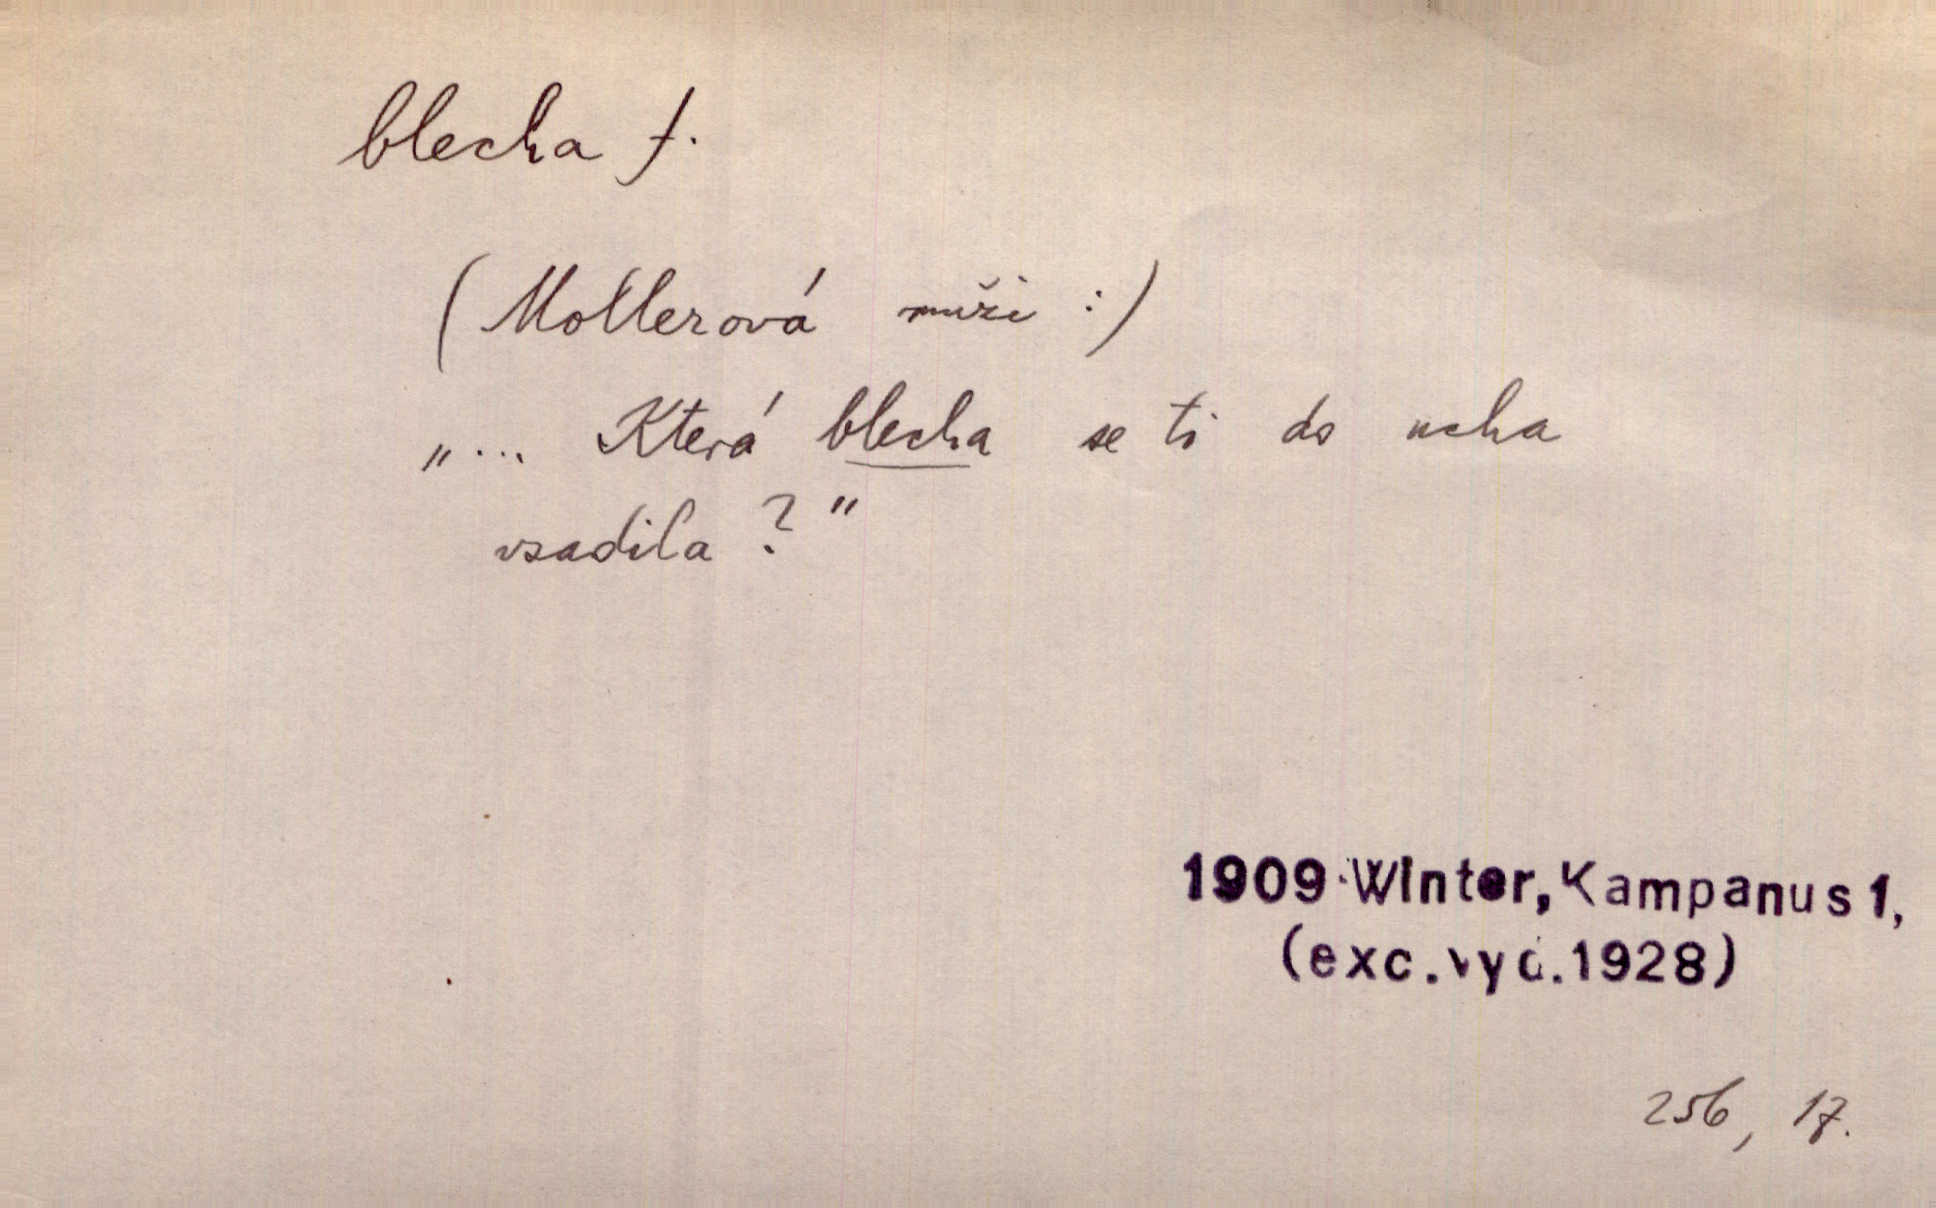 blecha f.
(Mollerová muži :)
„... Která blecha se ti do ucha
vsadila ?"
1909 Winter, Kampanus 1,
(exc.vyd.1928)
256, 17.